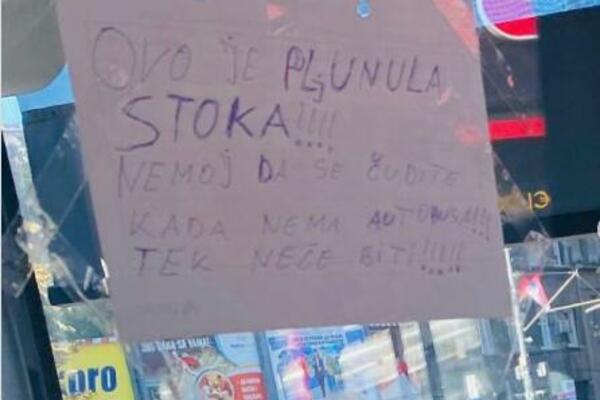 OVO JE PLJUNULA
STOKA!!!!
NEMOJ DA SE ČUDITE
KADA NEMA AUTOBUSA!!!!
TEK NEĆE BITI!!!!!
pro